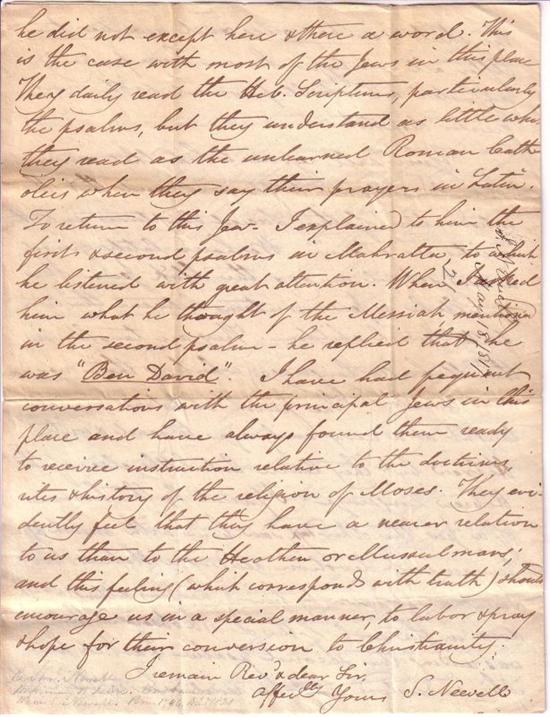 he did not except here & there a word. This
is the case with most of the Jews in this place
They daily read the Heb. Scriptures, particularly
the psalms, but they understand as little what
they read as the unlearned Roman Cath
olics when they say their prayers in Latin.
To return to this Jew. I explained to him the
first & second psalms in Mahratta, to which
he listened with great attention. When I asked
him what he thought of the Messiah mentioned
in the second psalm - he replied that he
was "Ben David". I have had frequent
conversations with the principal Jews in this
place and have always found them ready
to receive instruction relative to the doctrines,
rites & history of the religion of Moses. They evi-
dently feel that they have a nearer relation
to us than to the Heathen or Mussulmans;
and this feeling (which corresponds with truth) should
encourage us in a special manner, to labor & pray
& hope for their conversion to Christianity.
I remain Revd & dear Sir
Affecly Yours S. Newell